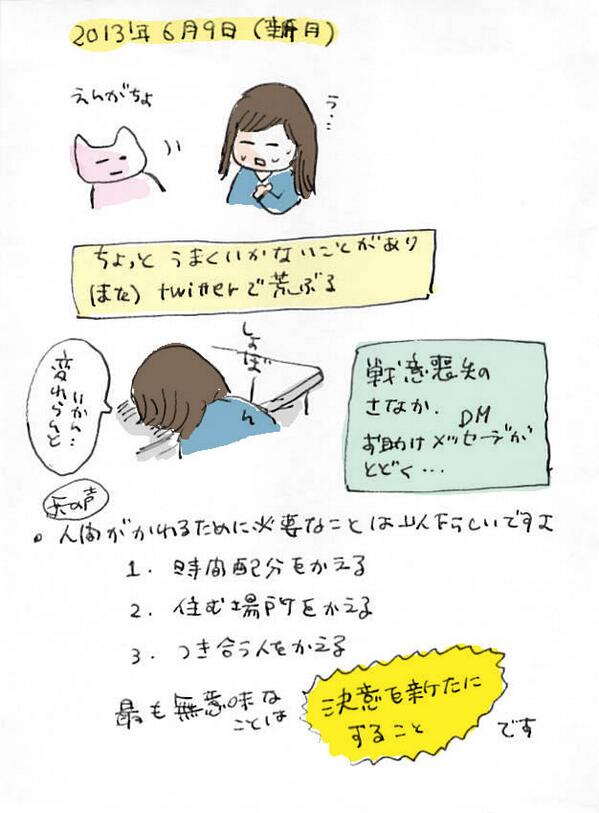 2013年6月9日（新月）
えんがちょ
う…
ちょっとうまくいかないことがあり
(また) twitterで荒ぶる
しょぼーん
いかん…
変われらんと
戦意喪失の
さなか、
DM
お助けメッセージが
とどく…
天の声
。人間がかわるために必要なことは以下らしいですよ
1. 時間配分をかえる
2. 住む場所をかえる
3. つき合う人をかえる
最も無意味な
ことは
決意を新たに
すること
です